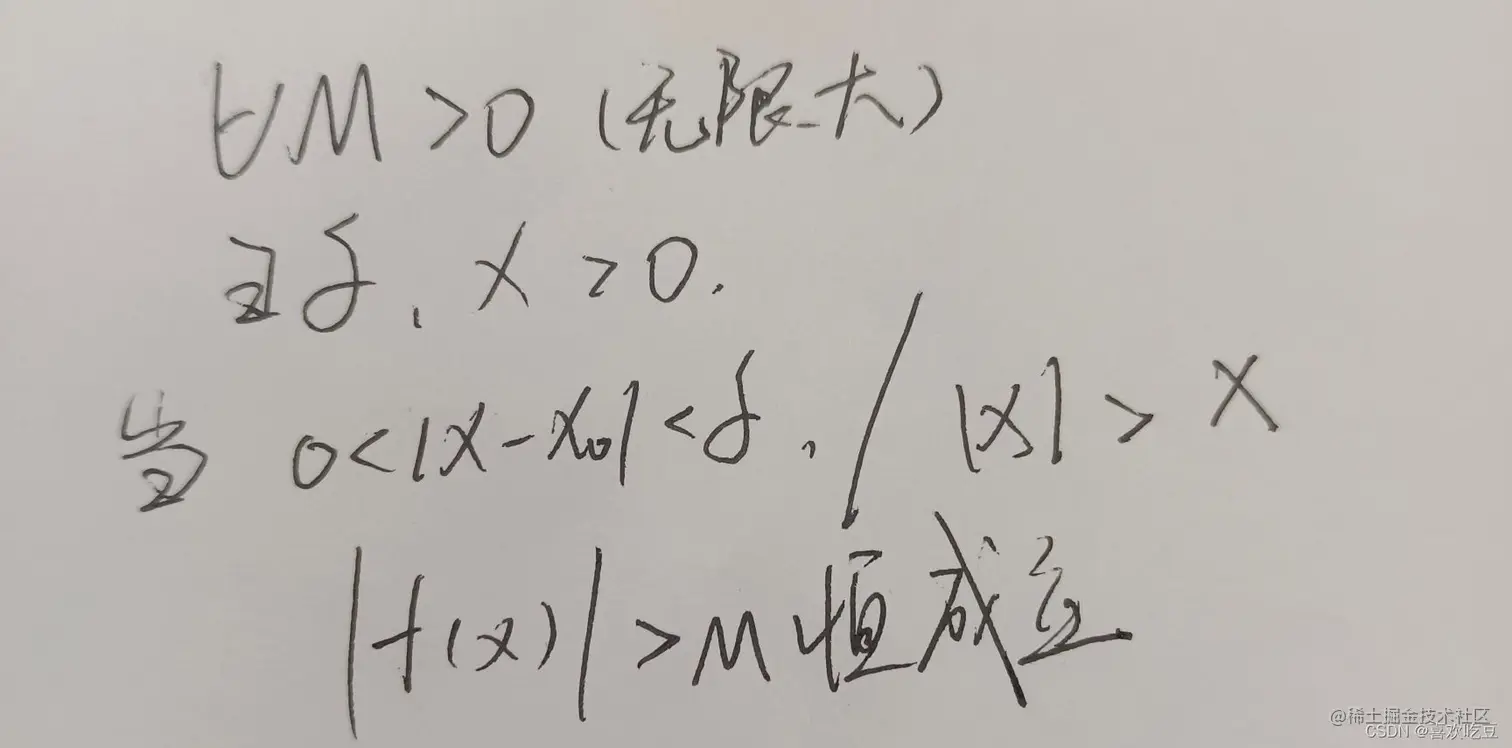 ∀M>0 (无限大)
∃δ, X>0.
当 0<|x-x₀|<δ, / |x|>X
|f(x)|>M 恒成立
@稀土掘金技术社区
CSDN @喜欢吃豆